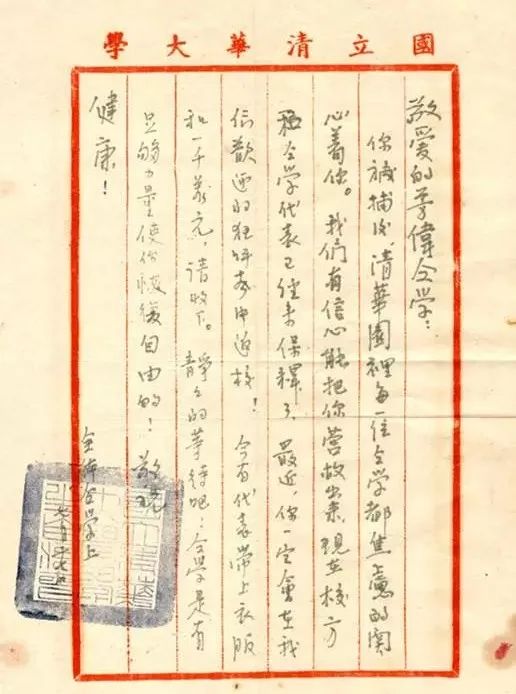 國立清華大學
敬愛的偉仝学：
你被捕后，清華園裡每一位仝学都焦慮的関
心着你。我們有信心能把你营救出来，現在校方
和仝学代表已经来保釋了，最近，你一定會在我
們歡迎的狂呼声中返校！今有代表帶上衣服
和一千萬元，請收下。靜々的等待吧：仝学是有
足够力量使你恢復自由的！敬祝
健康！
全体仝学上